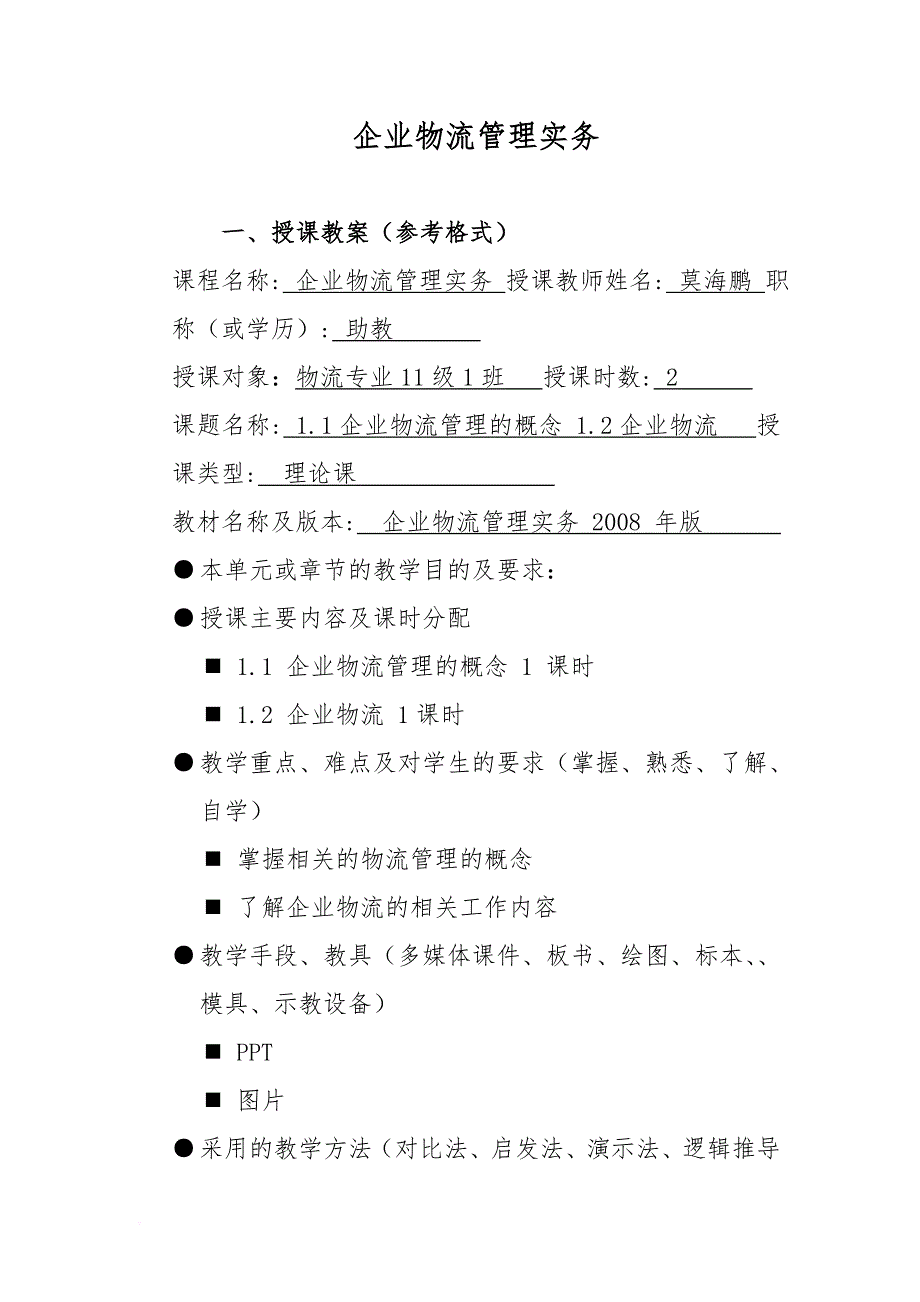 企业物流管理实务
一、授课教案（参考格式）
课程名称: 企业物流管理实务 授课教师姓名: 莫海鹏 职
称（或学历）: 助教
授课对象：物流专业11级1班 授课时数: 2
课题名称: 1.1企业物流管理的概念 1.2企业物流 授
课类型: 理论课
教材名称及版本: 企业物流管理实务 2008 年版
●本单元或章节的教学目的及要求：
●授课主要内容及课时分配
■ 1.1 企业物流管理的概念 1 课时
■ 1.2 企业物流 1课时
●教学重点、难点及对学生的要求（掌握、熟悉、了解、
自学）
■ 掌握相关的物流管理的概念
■ 了解企业物流的相关工作内容
●教学手段、教具（多媒体课件、板书、绘图、标本、、
模具、示教设备）
■ PPT
■ 图片
●采用的教学方法（对比法、启发法、演示法、逻辑推导